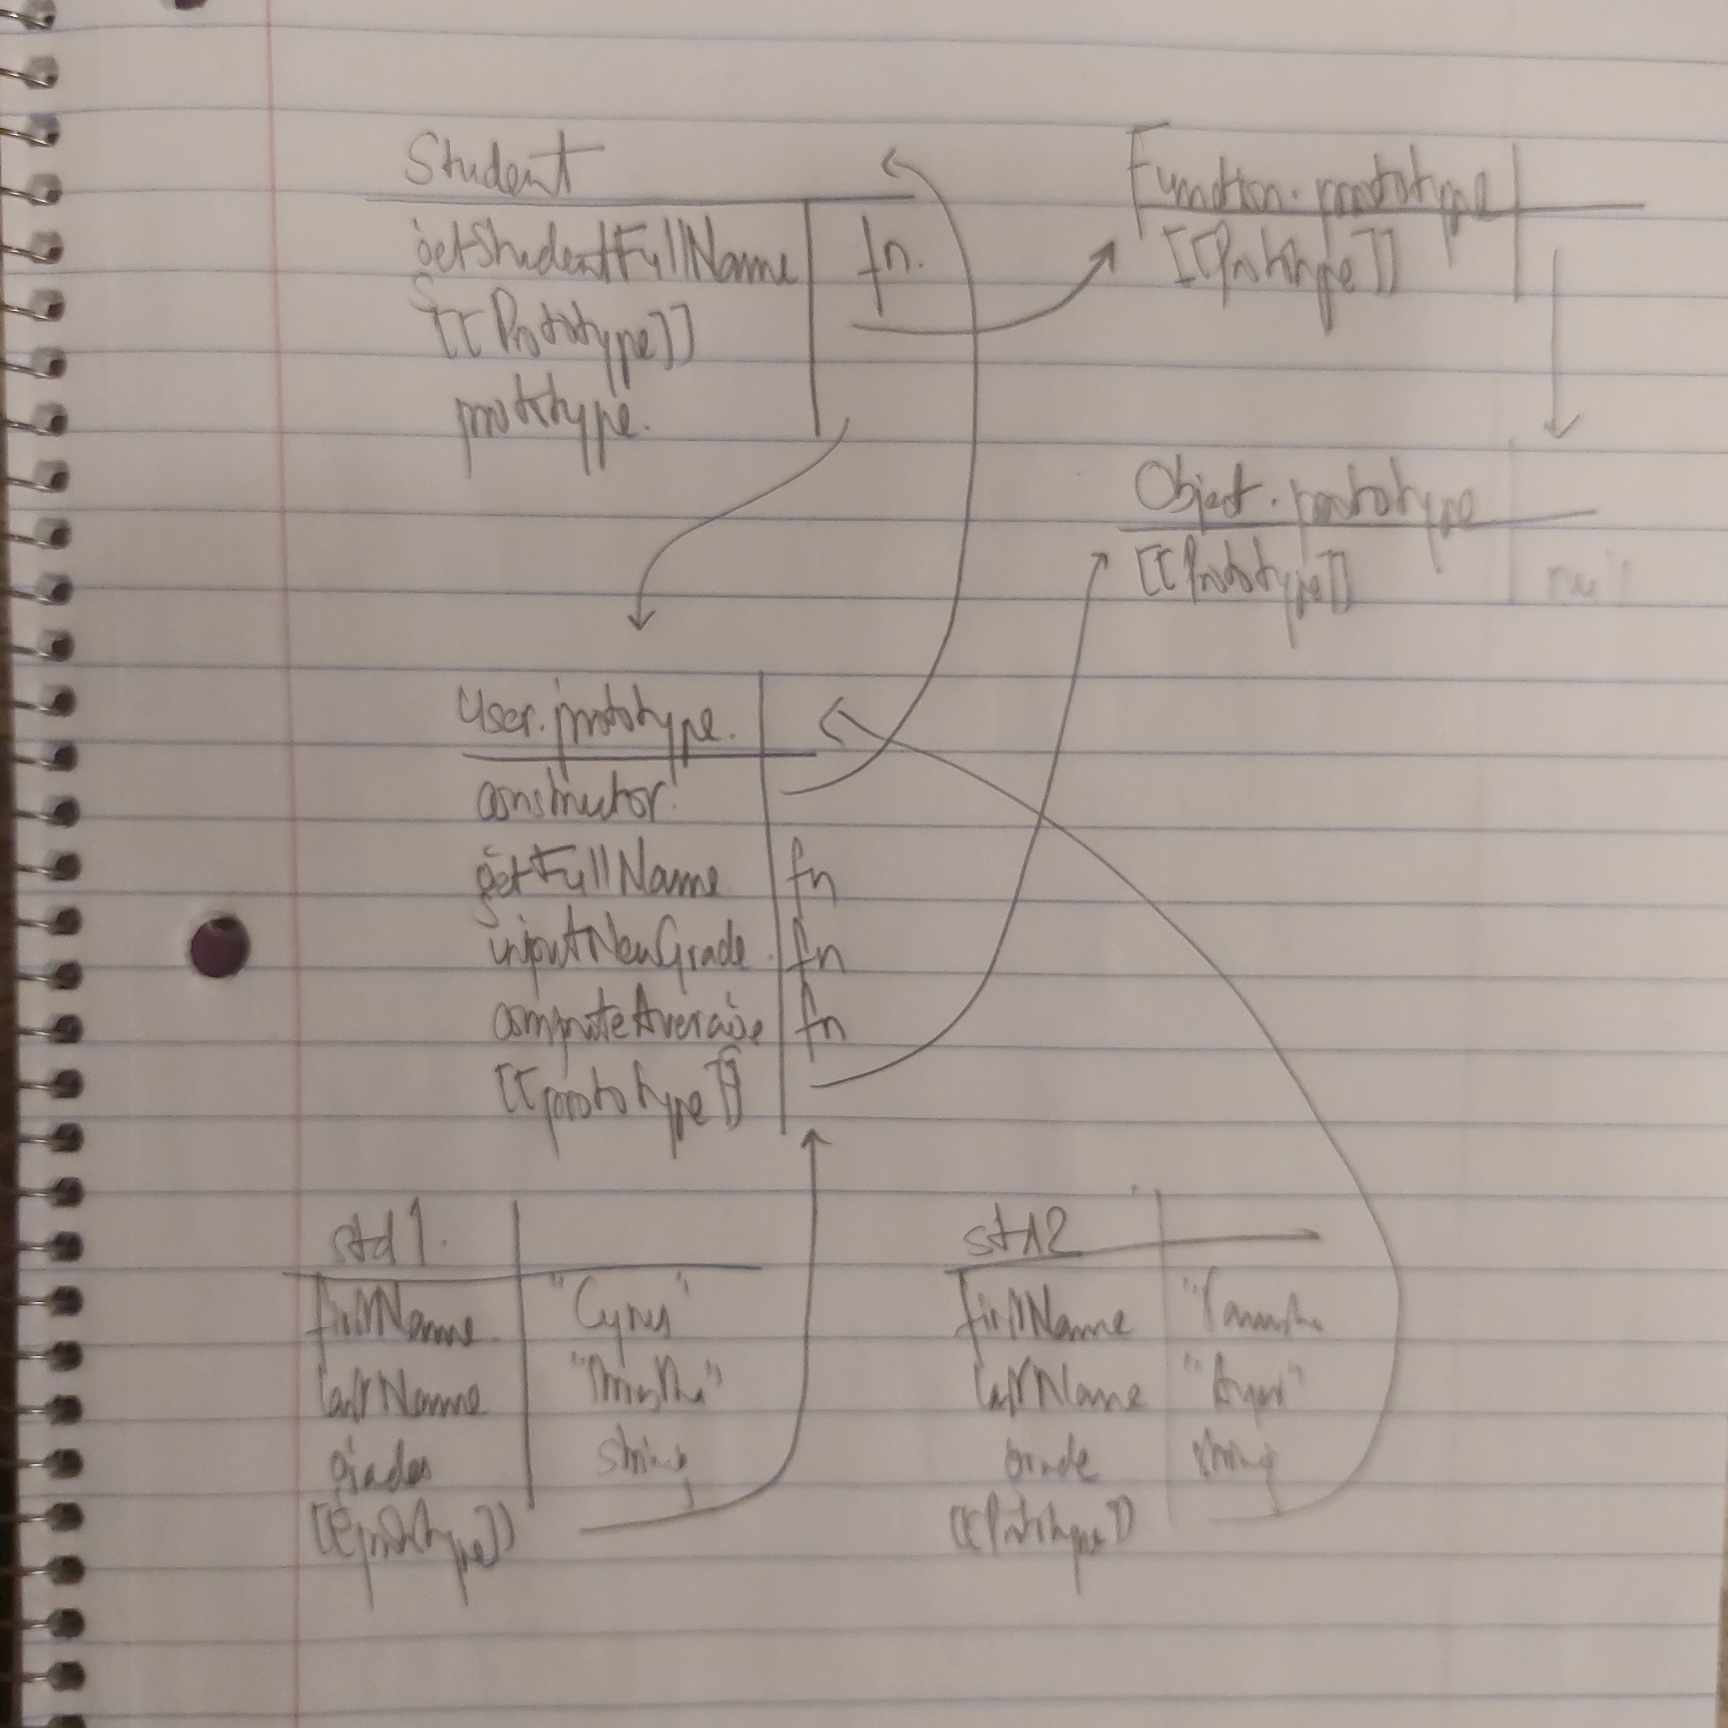 Student
getStudentFullName fn.
[[Prototype]]
prototype.
Function.prototype
[[Prototype]]
Object.prototype
[[Prototype]] null
User.prototype.
constructor
getFullName fn
inputNewGrade fn
computeAverage fn
[[prototype]]
std1.
firstName "Cyrus"
lastName
grades string
[[prototype]]
std2
firstName
lastName
grade string
[[Prototype]]